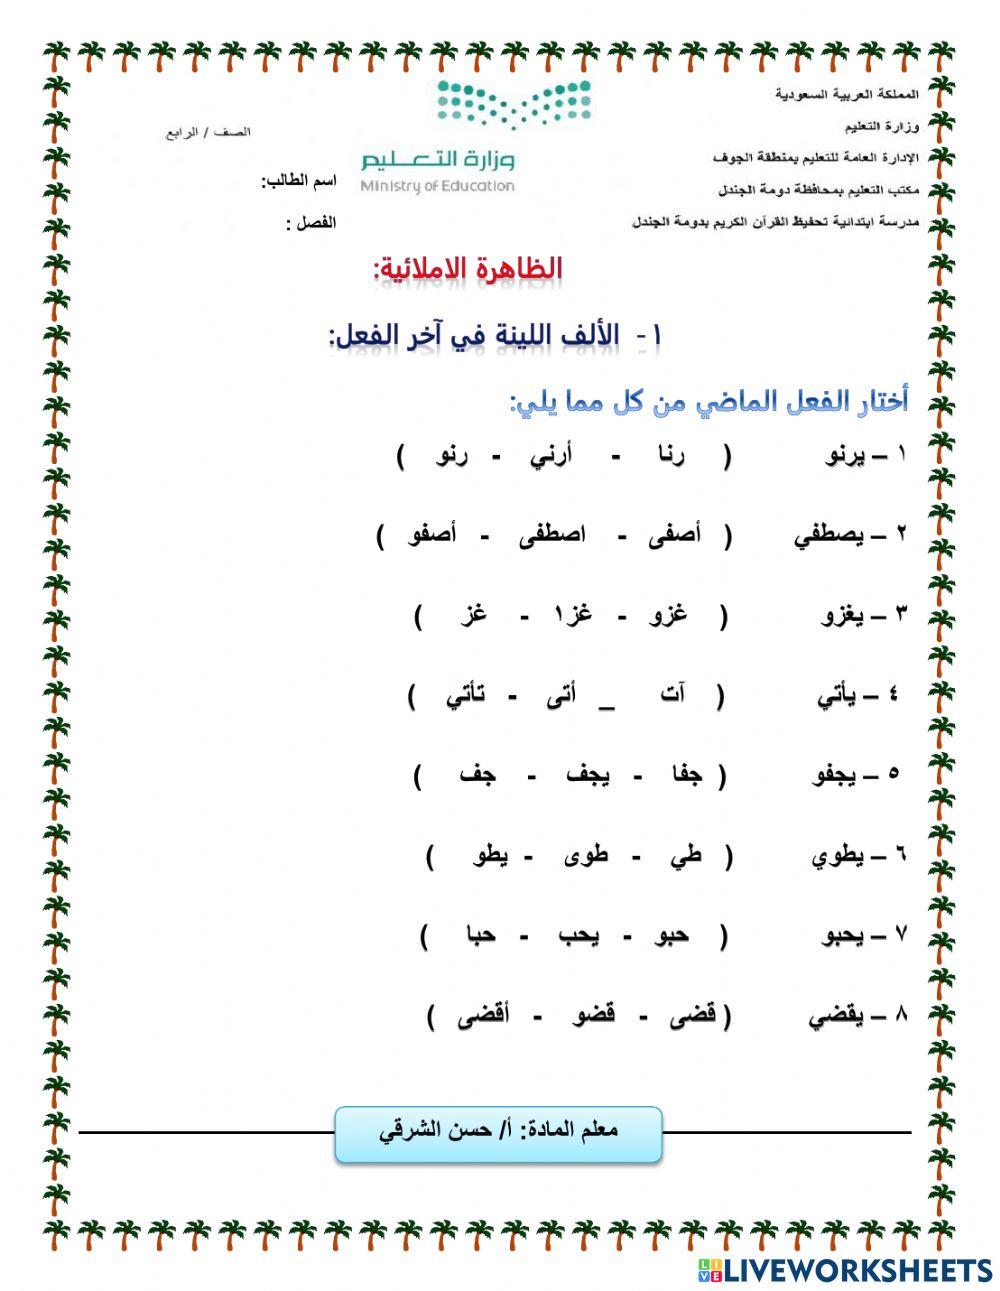 المملكة العربية السعودية
وزارة التعليم
الإدارة العامة للتعليم بمنطقة الجوف
مكتب التعليم بمحافظة دومة الجندل
مدرسة ابتدائية تحفيظ القرآن الكريم بدومة الجندل
وزارة التعليم
Ministry of Education
الصف / الرابع
اسم الطالب:
الفصل :
الظاهرة الاملائية:
١- الألف اللينة في آخر الفعل:
أختار الفعل الماضي من كل مما يلي:
١ – يرنو ( رنا - أرني - رنو )
٢ – يصطفي ( أصفى - اصطفى - أصفو )
٣ – يغزو ( غزو - غز١ - غز )
٤ – يأتي ( آت _ أتى - تأتي )
٥ – يجفو ( جفا - يجف - جف )
٦ – يطوي ( طي - طوى - يطو )
٧ – يحبو ( حبو - يحب - حبا )
٨ – يقضي ( قضى - قضو - أقضى )
معلم المادة: أ/ حسن الشرقي
LIVE LIVEWORKSHEETS